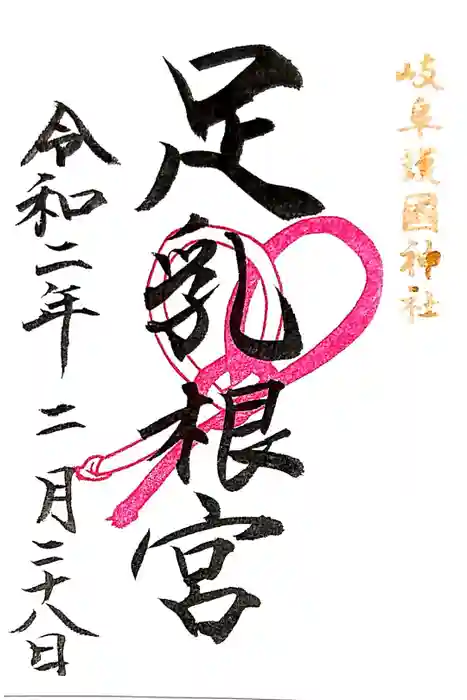 岐阜護國神社
足乳根宮
令和二年二月二十八日